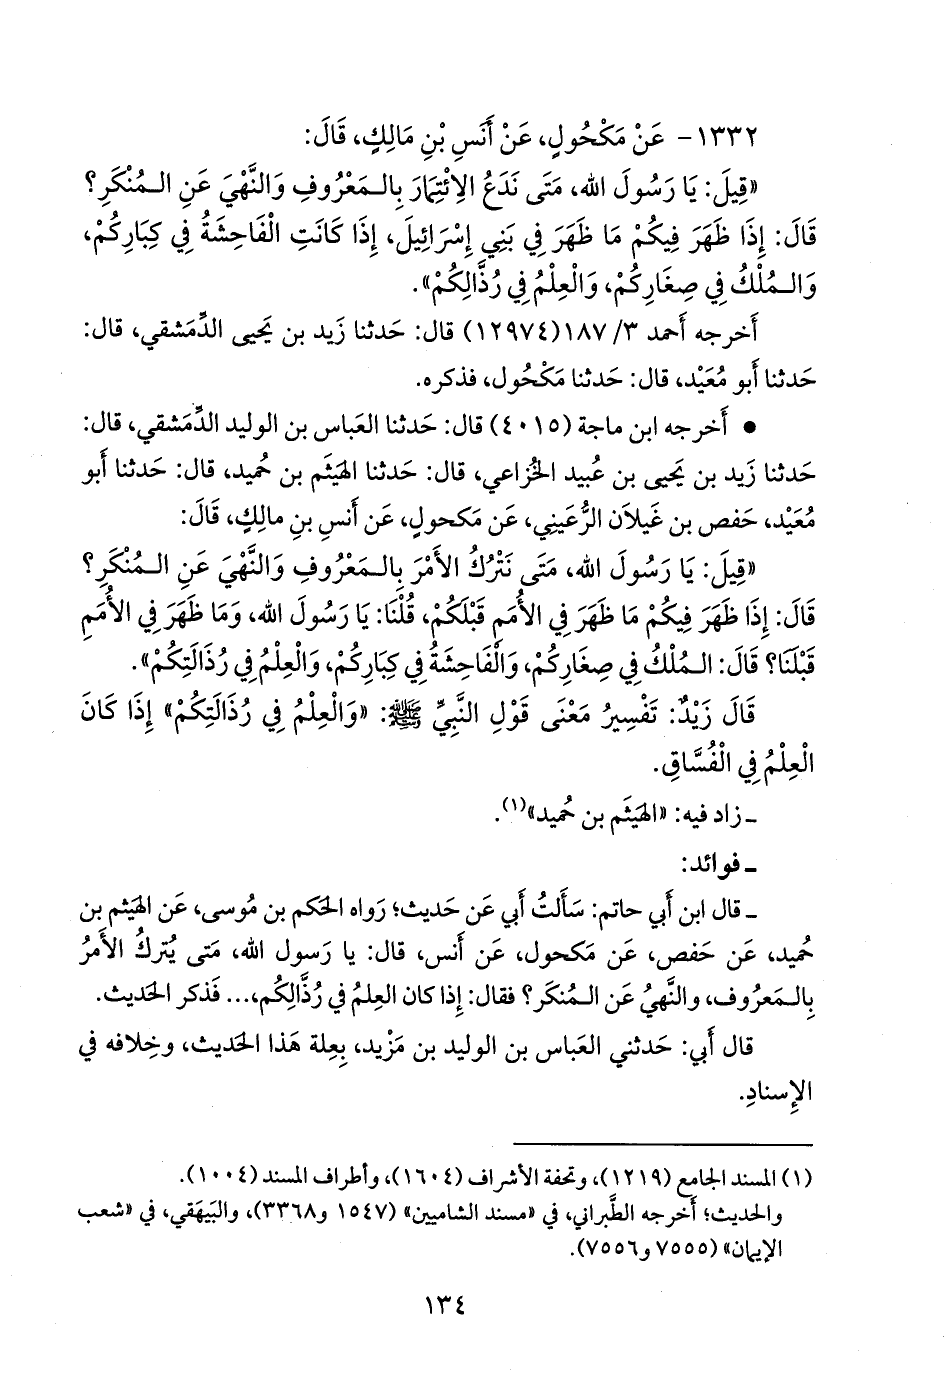 ١٣٣٢- عَنْ مَكْحُولٍ، عَنْ أَنَسِ بْنِ مَالِكٍ، قَالَ:
«قِيلَ: يَا رَسُولَ الله، مَتَى نَدَعُ الِائْتِمَارَ بِالـمَعْرُوفِ وَالنَّهْيَ عَنِ الـمُنْكَرِ؟
قَالَ: إِذَا ظَهَرَ فِيكُمْ مَا ظَهَرَ فِي بَنِي إِسْرَائِيلَ، إِذَا كَانَتِ الْفَاحِشَةُ فِي كِبَارِكُمْ،
وَالـمُلْكُ فِي صِغَارِكُمْ، وَالْعِلْمُ فِي رُذَّالِكُمْ».
أَخرجه أَحمد ٣/ ١٨٧(١٢٩٧٤) قال: حَدثنا زَيد بن يَحيى الدِّمَشقي، قال:
حَدثنا أَبو مُعَيْد، قال: حَدثنا مَكْحُول، فذكره.
• أَخرجه ابن ماجة (٤٠١٥) قال: حَدثنا العَباس بن الوليد الدِّمَشقي، قال:
حَدثنا زَيد بن يَحيى بن عُبيد الخُزاعي، قال: حَدثنا الهَيثَم بن حُميد، قال: حَدثنا أَبو
مُعَيْد، حَفص بن غَيلاَن الرُّعَيني، عَن مَكحولٍ، عَن أَنسِ بنِ مالِكٍ، قَالَ:
«قِيلَ: يَا رَسُولَ الله، مَتَى نَتْرُكُ الأَمْرَ بِالـمَعْرُوفِ وَالنَّهْيَ عَنِ الـمُنْكَرِ؟
قَالَ: إِذَا ظَهَرَ فِيكُمْ مَا ظَهَرَ فِي الأُمَمِ قَبْلَكُمْ، قُلْنَا: يَا رَسُولَ الله، وَمَا ظَهَرَ فِي الأُمَمِ
قَبْلَنَا؟ قَالَ: الـمُلْكُ فِي صِغَارِكُمْ، وَالْفَاحِشَةُ فِي كِبَارِكُمْ، وَالْعِلْمُ فِي رُذَالَتِكُمْ».
قَالَ زَيْدٌ: تَفْسِيرُ مَعْنَى قَوْلِ النَّبِيِّ ﷺ: «وَالْعِلْمُ فِي رُذَالَتِكُمْ» إِذَا كَانَ
الْعِلْمُ فِي الْفُسَّاقِ.
ـ زاد فيه: «الهَيثَم بن حُميد»(١).
ـ فوائد:
ـ قال ابن أَبي حاتم: سَأَلتُ أَبي عَن حَديث؛ رَواه الحَكم بن مُوسى، عَن الهَيثم بن
حُميد، عَن حَفص، عَن مَكحول، عَن أَنس، قال: يا رَسول الله، مَتى يُتركُ الأَمرُ
بِالـمَعروُف، والنَّهيُ عَن الـمُنكَر؟ فقال: إِذا كان العِلمُ في رُذَّالِكُم،... فَذكر الحَديث.
قال أَبي: حَدثني العَباس بن الوليد بن مَزْيد، بِعِلة هَذا الحَديث، وخِلافه في
الإِسنادِ.
(١) المسند الجامع (١٢١٩)، وتحفة الأشراف (١٦٠٤)، وأطراف المسند (١٠٠٤).
والحديث؛ أخرجه الطَّبراني، في «مسند الشاميين» (١٥٤٧ و٣٣٦٨)، والبَيهَقي، في «شعب
الإيمان» (٧٥٥٥ و٧٥٥٦).
١٣٤